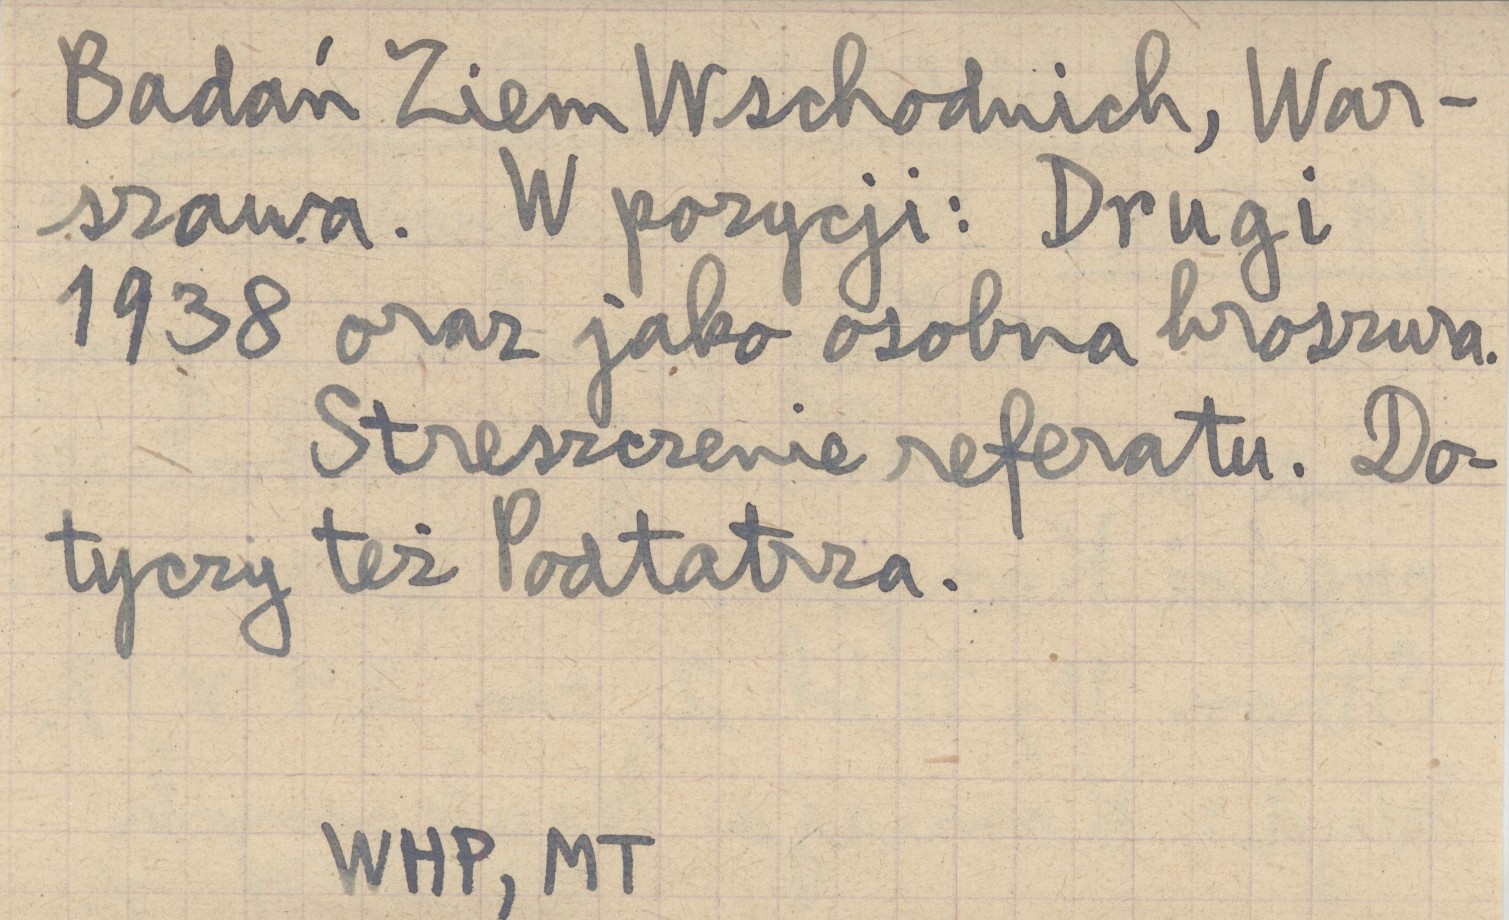 Badań Ziem Wschodnich, War-
szawa. W pozycji: Drugi
1938 oraz jako osobna broszura.
Streszczenie referatu. Do-
tyczy też Podtatrza.
WHP, MT